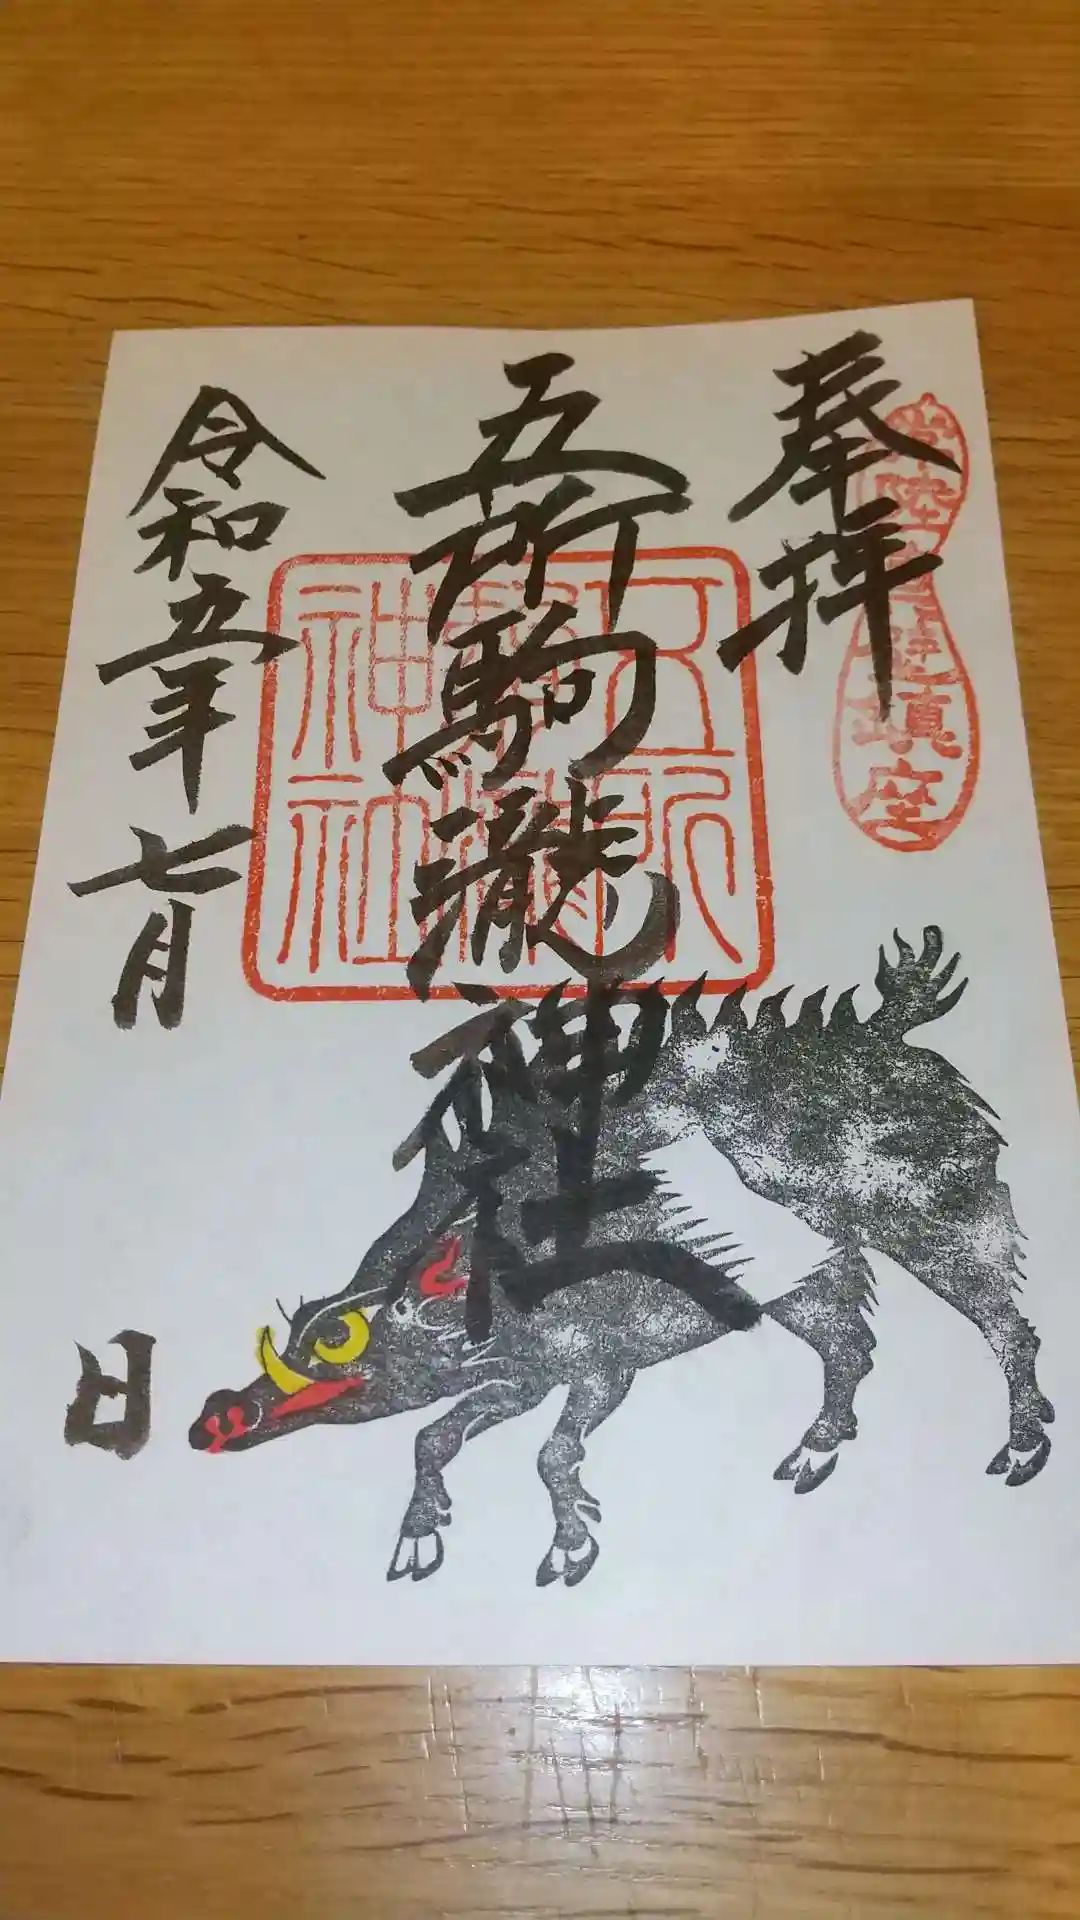 奉拝
五所駒瀧神社
令和五年七月
日
五所駒瀧神社